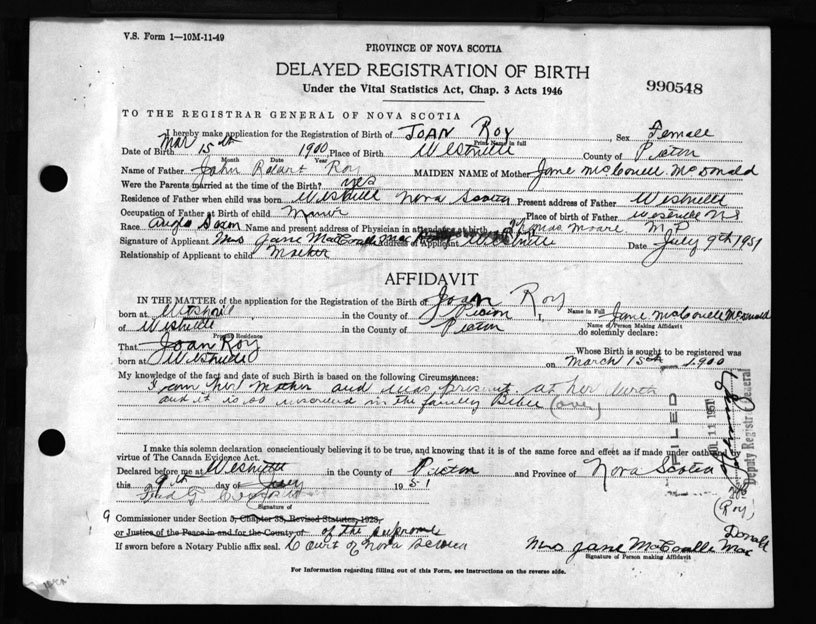 V.S. Form 1—10M-11-49
PROVINCE OF NOVA SCOTIA
DELAYED REGISTRATION OF BIRTH
990548
Under the Vital Statistics Act, Chap. 3 Acts 1946
TO THE REGISTRAR GENERAL OF NOVA SCOTIA
I hereby make application for the Registration of Birth of JOAN ROY Sex Female
Print Name in full
Date of Birth Mar 15th 1900 Place of Birth Westville County of Pictou
Month Date Year
Name of Father John Robert Roy MAIDEN NAME of Mother Jane McConell McDonald
Were the Parents married at the time of Birth? yes
Residence of Father when child was born Westville Nova Scotia Present address of Father Westville
Occupation of Father at Birth of child Miner Place of birth of Father Westville NS
Race Anglo Saxon Name and present address of Physician in attendance at birth Thomas Moore M.P
Signature of Applicant Mrs Jane Address of Applicant Westville Date July 9th 1951
Relationship of Applicant to child Mother
AFFIDAVIT
IN THE MATTER of the application for the Registration of the Birth of Joan Roy
Name in Full
born at Westville in the County of Pictou, I, Jane McConell McDonald
Name of Person Making Affidavit
of Westville in the County of Pictou do solemnly declare:
Present Residence
That Joan Roy Whose Birth is sought to be registered was
born at Westville on March 15th 1900
My knowledge of the fact and date of such Birth is based on the following Circumstances:
I am her Mother and was present at her birth
and it is so recorded in the family Bible (over)
I make this solemn declaration conscientiously believing it to be true, and knowing that it is of the same force and effect as if made under oath by
virtue of The Canada Evidence Act.
Declared before me at Westville in the County of Pictou and Province of Nova Scotia
this 9th day of July 1951
Signature of
9 Commissioner under Section 3, Chapter 38, Revised Statutes, 1923,
or Justice of the Peace in and for the County of of the Supreme
If sworn before a Notary Public affix seal. Court of Nova Scotia
Mrs Jane Mac Donald
Signature of Person making Affidavit
For Information regarding filling out of this Form, see instructions on the reverse side.
FILED
JUL 11 1951
Deputy Registrar General
(Roy)